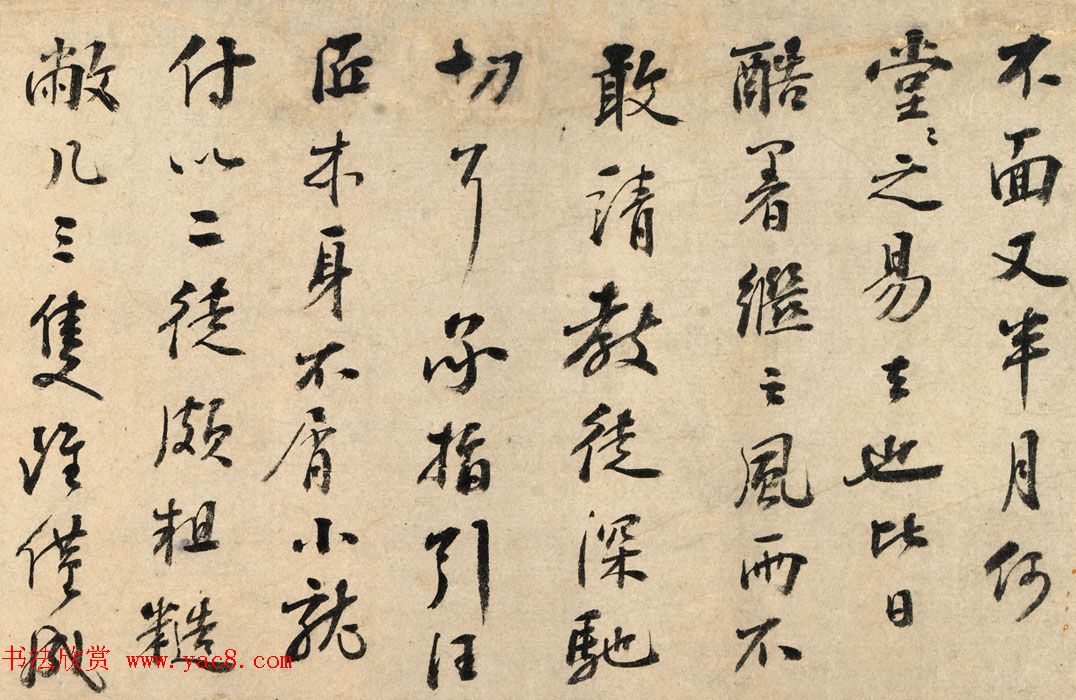 不面又半月何
堂〻之易去也比日
酷暑繼之風雨不
敢請教徒深馳
切耳承指引汪
匠本身不屑小就
付以二徒頗粗糙
敝几三隻雖僅成
书法欣赏 www.yac8.com